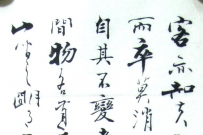 客亦知夫
而卒莫消
自其不變者
間物各有
山間之明月